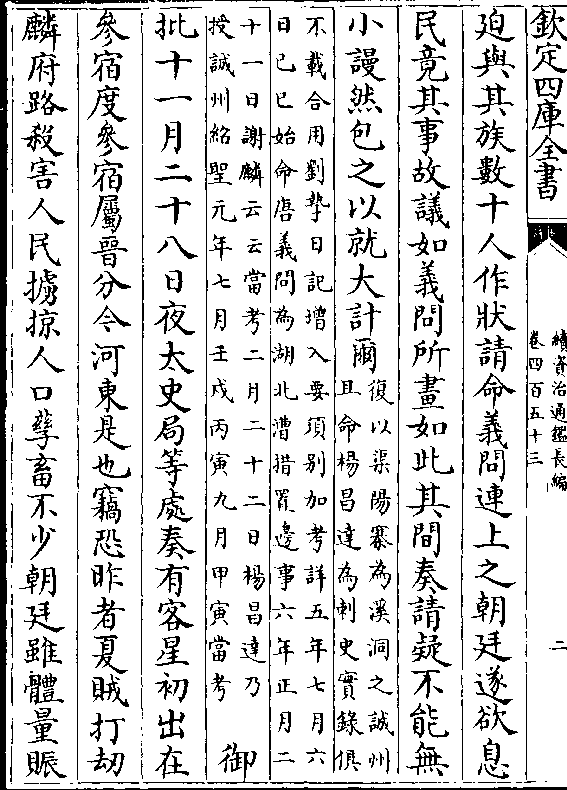 欽定四庫全書
續資治通鑑長編
卷四百五十三
二
廹與其族數十人作狀請命義問連上之朝廷遂欲息
民竟其事故議如義問所畫如此其間奏請疑不能無
小謾然包之以就大計爾
復以渠陽寨為溪洞之誠州
且命楊昌達為刺史實錄俱
不載合用劉摯日記增入要須別加考詳五年七月六
日已巳始命唐義問為湖北漕措置邊事六年正月二
十一日謝麟云云當考二月二十二日楊昌達乃
授誠州紹聖元年七月壬戌丙寅九月甲寅當考
御
批十一月二十八日夜太史局等處奏有客星初出在
參宿度參宿屬晉分今河東是也竊恐昨者夏賊打刼
麟府路殺害人民擄掠人口孳畜不少朝廷雖體量賑